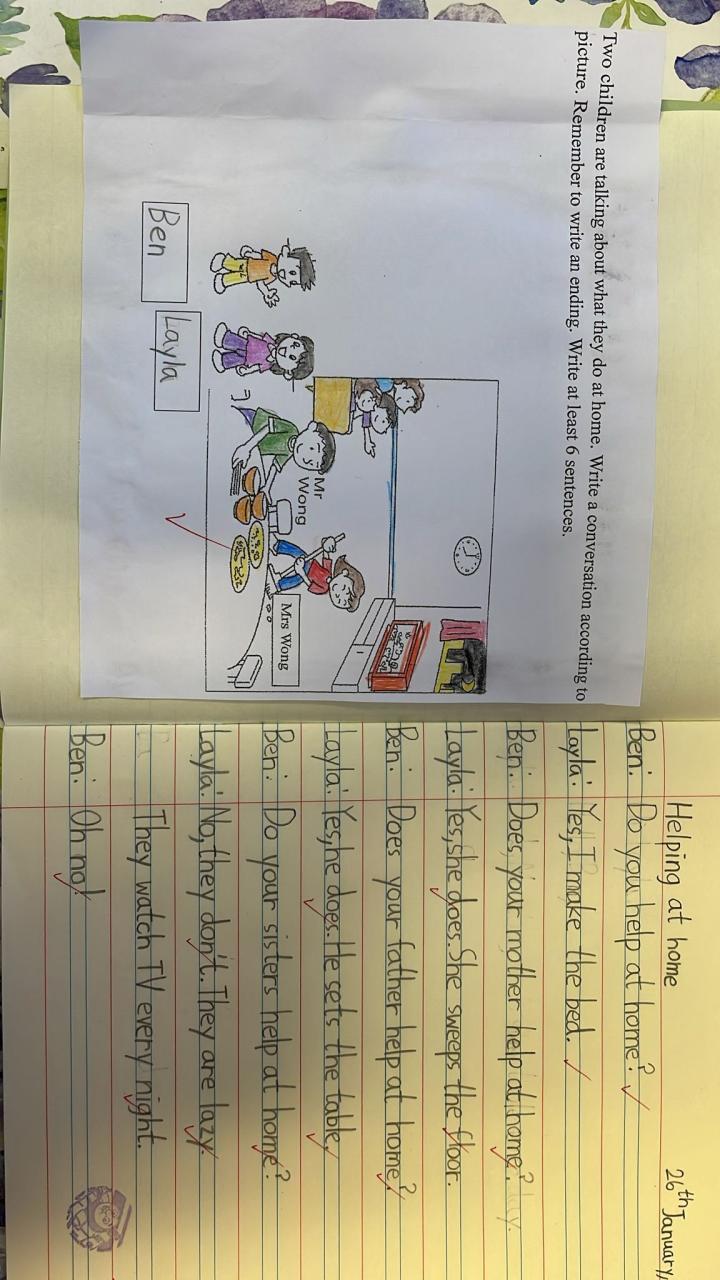 Two children are talking about what they do at home. Write a conversation according to
picture. Remember to write an ending. Write at least 6 sentences.
Mr
Wong
Mrs Wong
Ben
Layla
26th January,
Helping at home
Ben: Do you help at home?
Layla: Yes, I make the bed.
Ben: Does your mother help at home?
Layla: Yes, she does. She sweeps the floor.
Ben: Does your father help at home?
Layla: Yes, he does. He sets the table.
Ben: Do your sisters help at home?
Layla: No, they don't. They are lazy.
They watch TV every night.
Ben: Oh no!